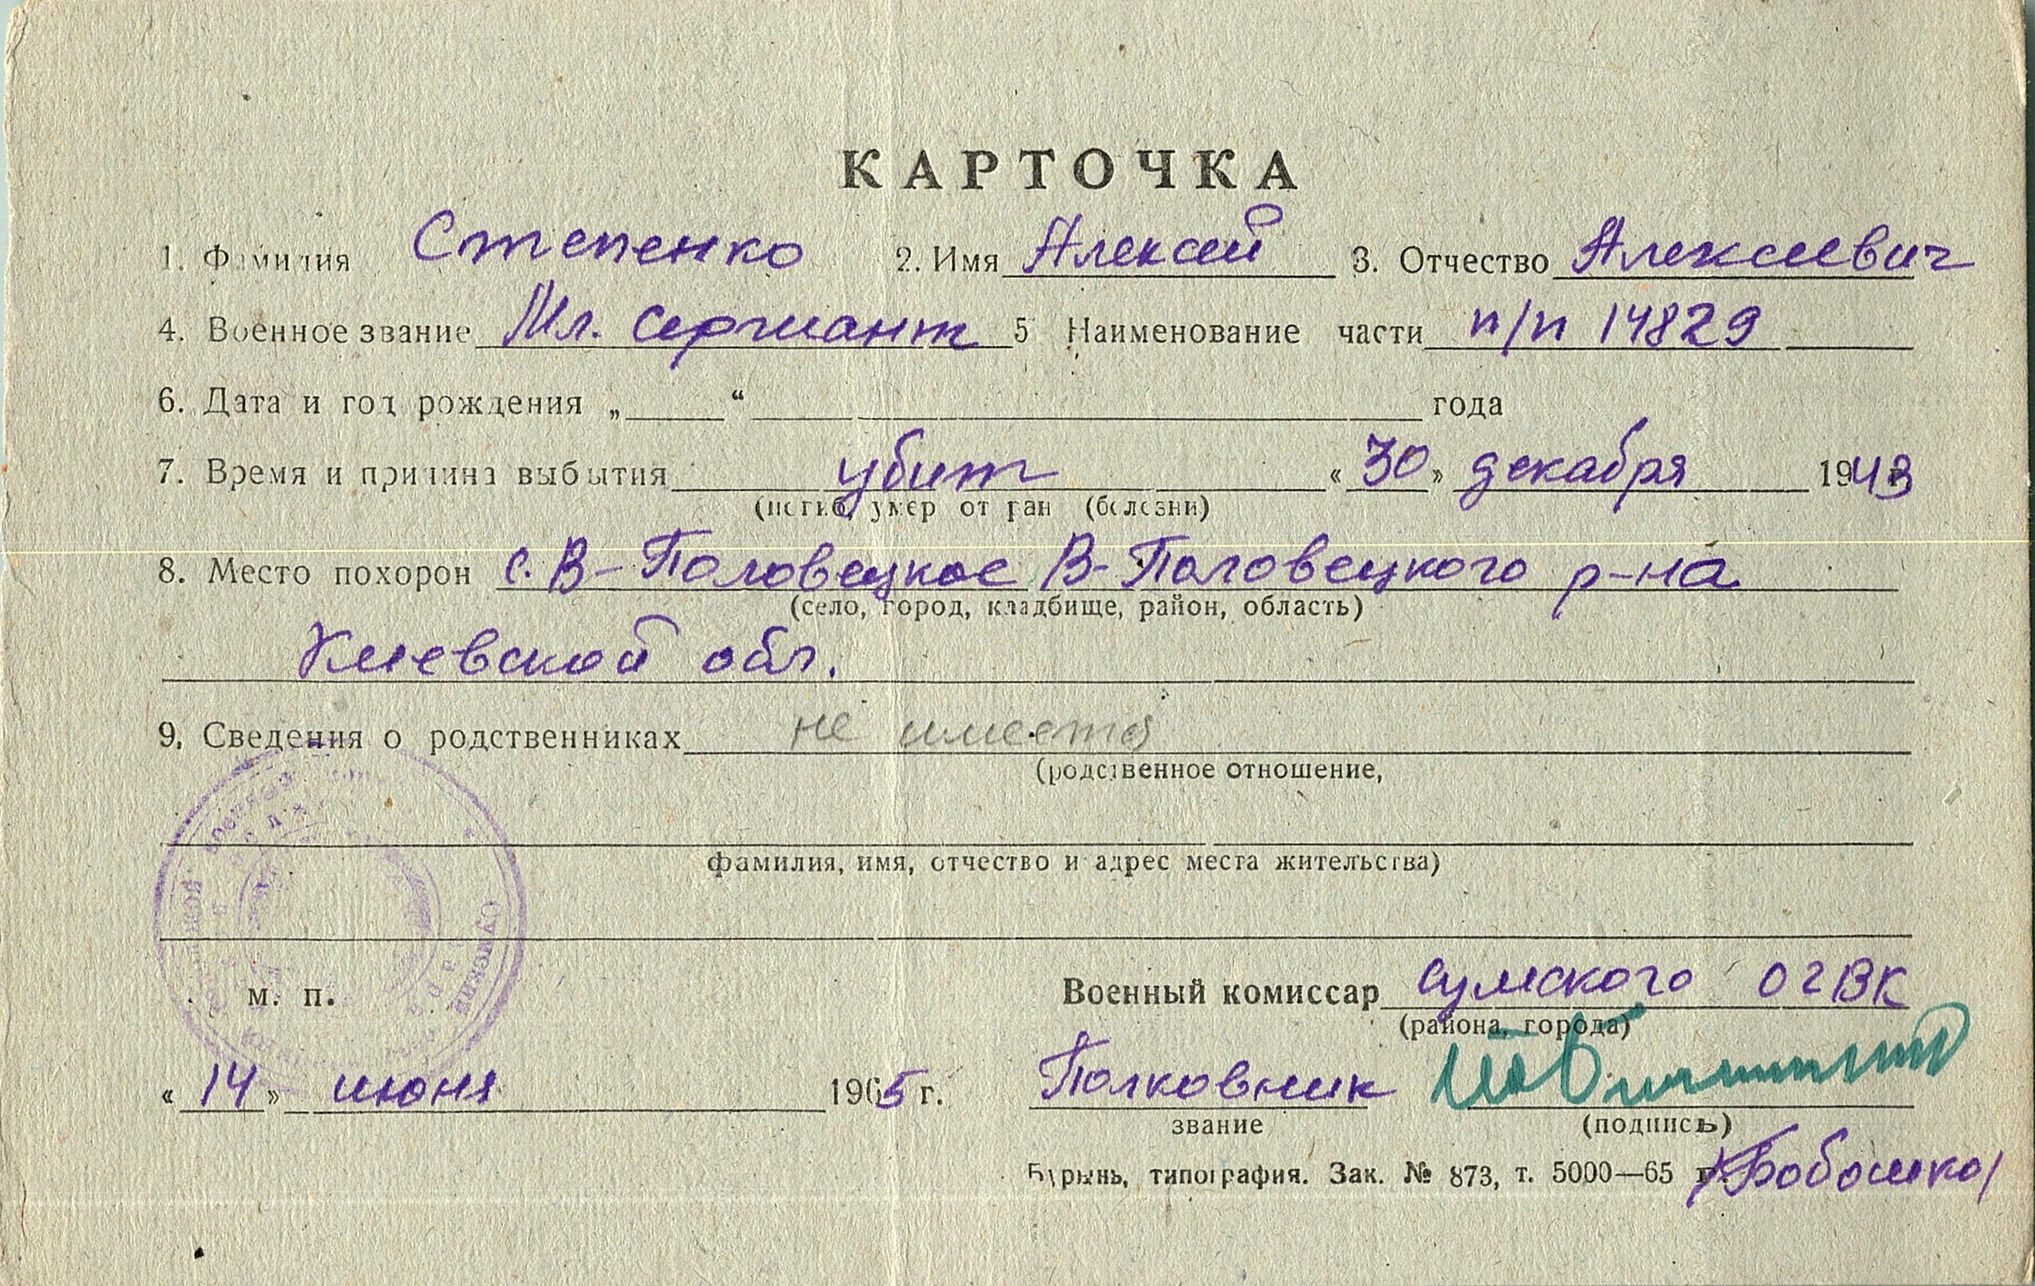 КАРТОЧКА
1. Фамилия Степенко 2. Имя Алексей 3. Отчество Алексеевич
4. Военное звание Мл. сержант 5 Наименование части п/п 14829
6. Дата и год рождения „ “ года
7. Время и причина выбытия убит «30» декабря 1943 г.
(погиб, умер от ран (болезни)
8. Место похорон с. В-Половецкое В-Половецкого р-на
(село, город, кладбище, район, область)
Киевской обл.
9. Сведения о родственниках не имеется
(родственное отношение,
фамилия, имя, отчество и адрес места жительства)
Военный комиссар Сумского ОГВК
м. п.
(района, города)
«14» июня 1965 г. Полковник
звание (подпись)
Бурынь, типография. Зак. № 873, т. 5000—65 г. /Бобошко/